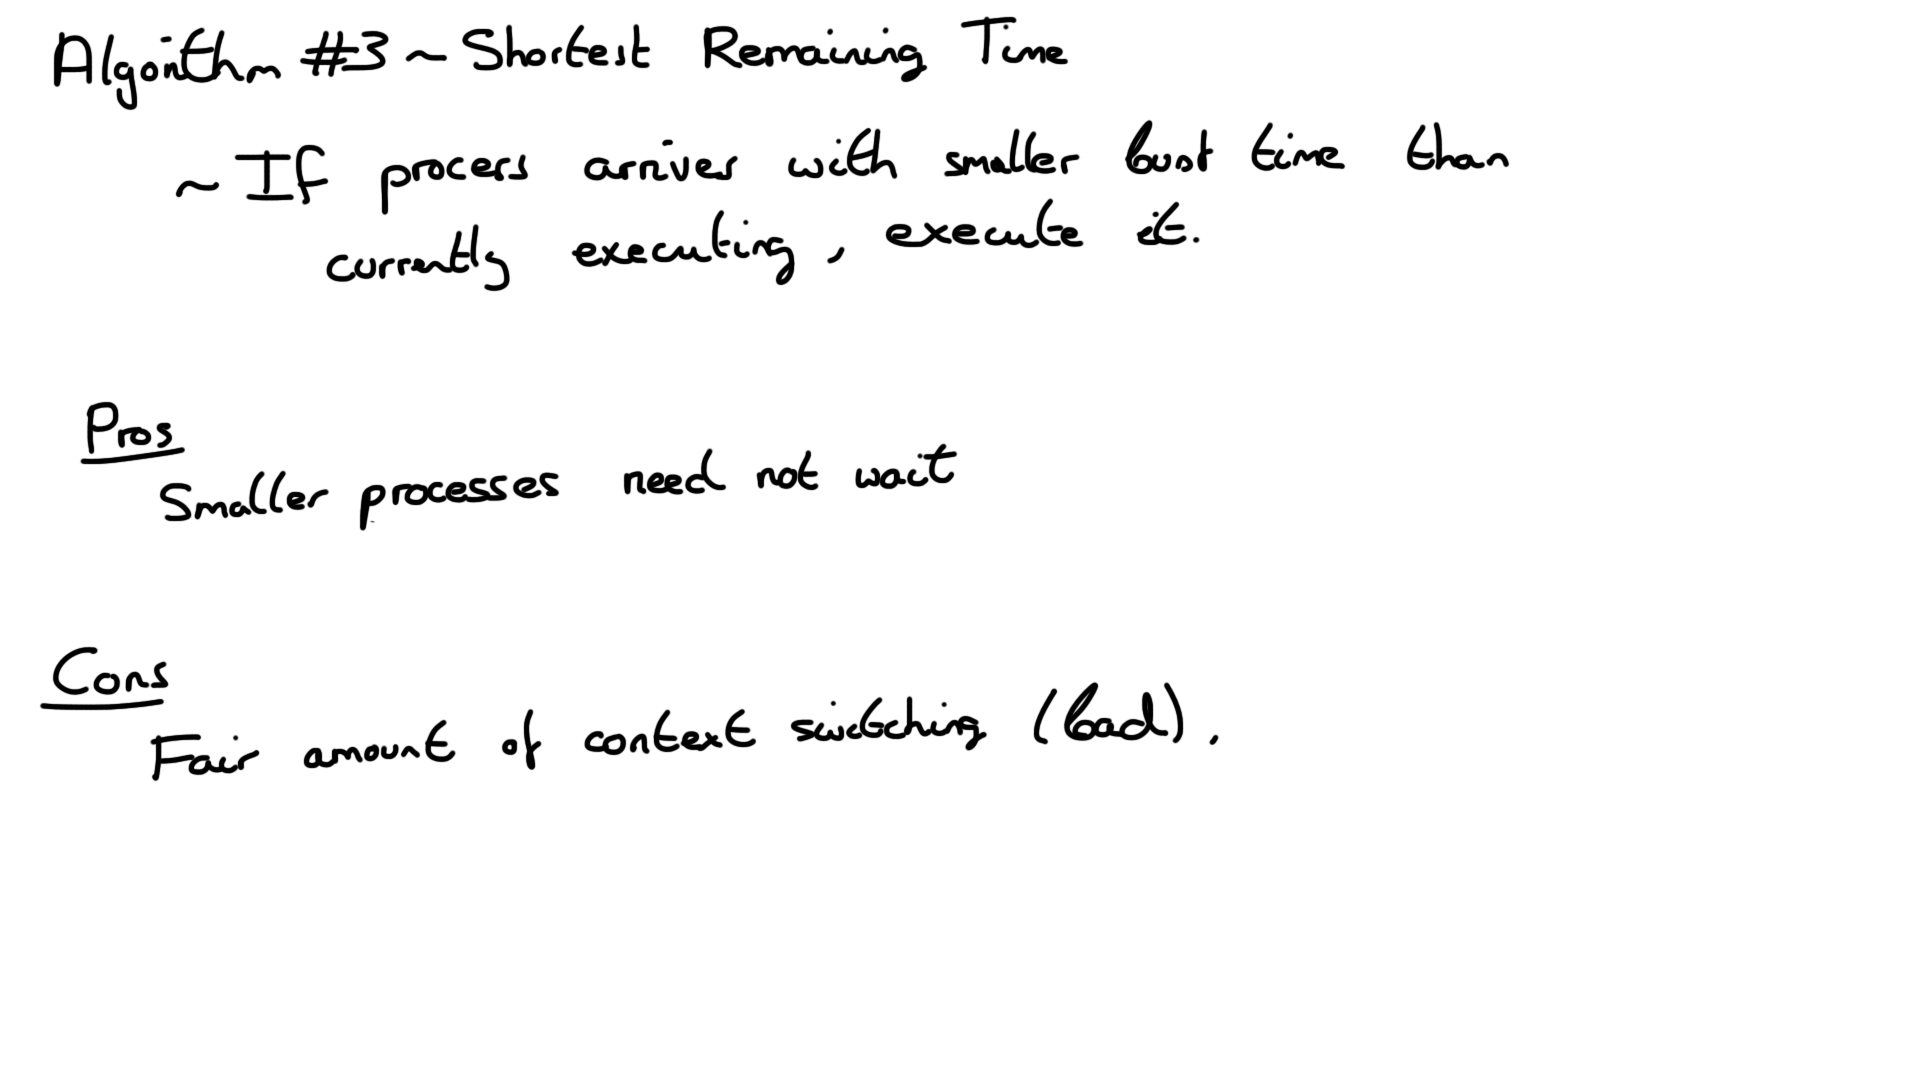 Algorithm #3 ~ Shortest Remaining Time
~ If process arrives with smaller bust time than
currently executing, execute it.
Pros
Smaller processes need not wait
Cons
Fair amount of context switching (bad).